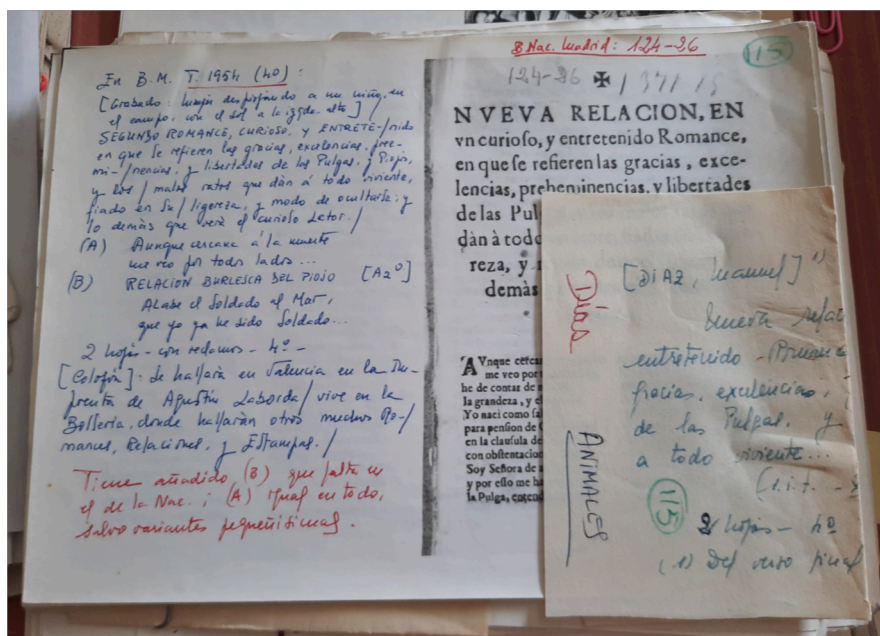 En B.M. T. 1954 (40):
[Grabado: mujer despiojando a un niño, en
el campo, con el sol a la izqda. alto]
SEGUNDO ROMANCE, CURIOSO, Y ENTRETE-/nido
en que se refieren las gracias, excelencias, pree-
mi-/nencias, y libertades de las Pulgas, y Piojos,
y los / malos ratos que dàn á todo viviente,
fiado en su / ligereza, y modo de ocultarse: y
lo demàs que verà el curioso Letor. /
(A) Aunque cercana à la muerte
me veo por todos lados...
(B) RELACION BURLESCA DEL PIOJO [A2v]
Alabe el Soldado al Mar,
que yo ya he sido Soldado...
2 hojas - con reclamos - 4º -
[Colofón]: Se hallarà en Valencia en la Im-
prenta de Agustin Laborda / vive en la
Bolseria, donde hallaràn otros muchos Ro-/
mances, Relaciones, y Estampas. /
Tiene añadido (B) que falta en
el de la Nac.; (A) igual en todo,
salvo variantes pequeñísimas.
B Nac. Madrid: 124-26
15
124-26 ✠ 1371
NVEVA RELACION, EN
vn curioſo, y entretenido Romance,
en que ſe refieren las gracias, exce-
lencias, preheminencias, y libertades
de las Pul
dàn à todo
reza, y
demàs
AVnque cerca
me veo por
he de contar de
la grandeza, y e
Yo naci como ſa
para penſion de
en la clauſula de
con obſtentacion
Soy Señora de
y por eſſo me ha
la Pulga, entend
Días
ANIMALES
[DIAZ, Manuel] 1)
Nueva relac
entretenido
gracias, excelencias,
de las Pulgas, y
a todo viviente...
(s.i.t. -
115
2 hojas - 4º
(1) Del verso final